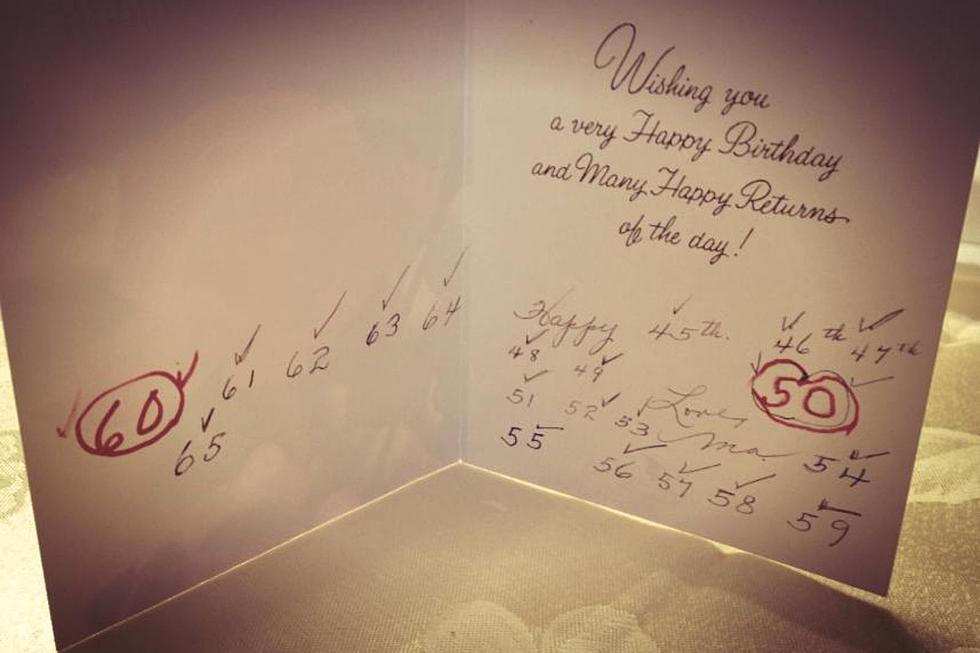 61 62 63 64
60
65
Wishing you
a very Happy Birthday
and Many Happy Returns
of the day!
Happy 45th. 46th 47th
48 49 50
51 52 53 Love,
Ma 54
55 56 57 58 59